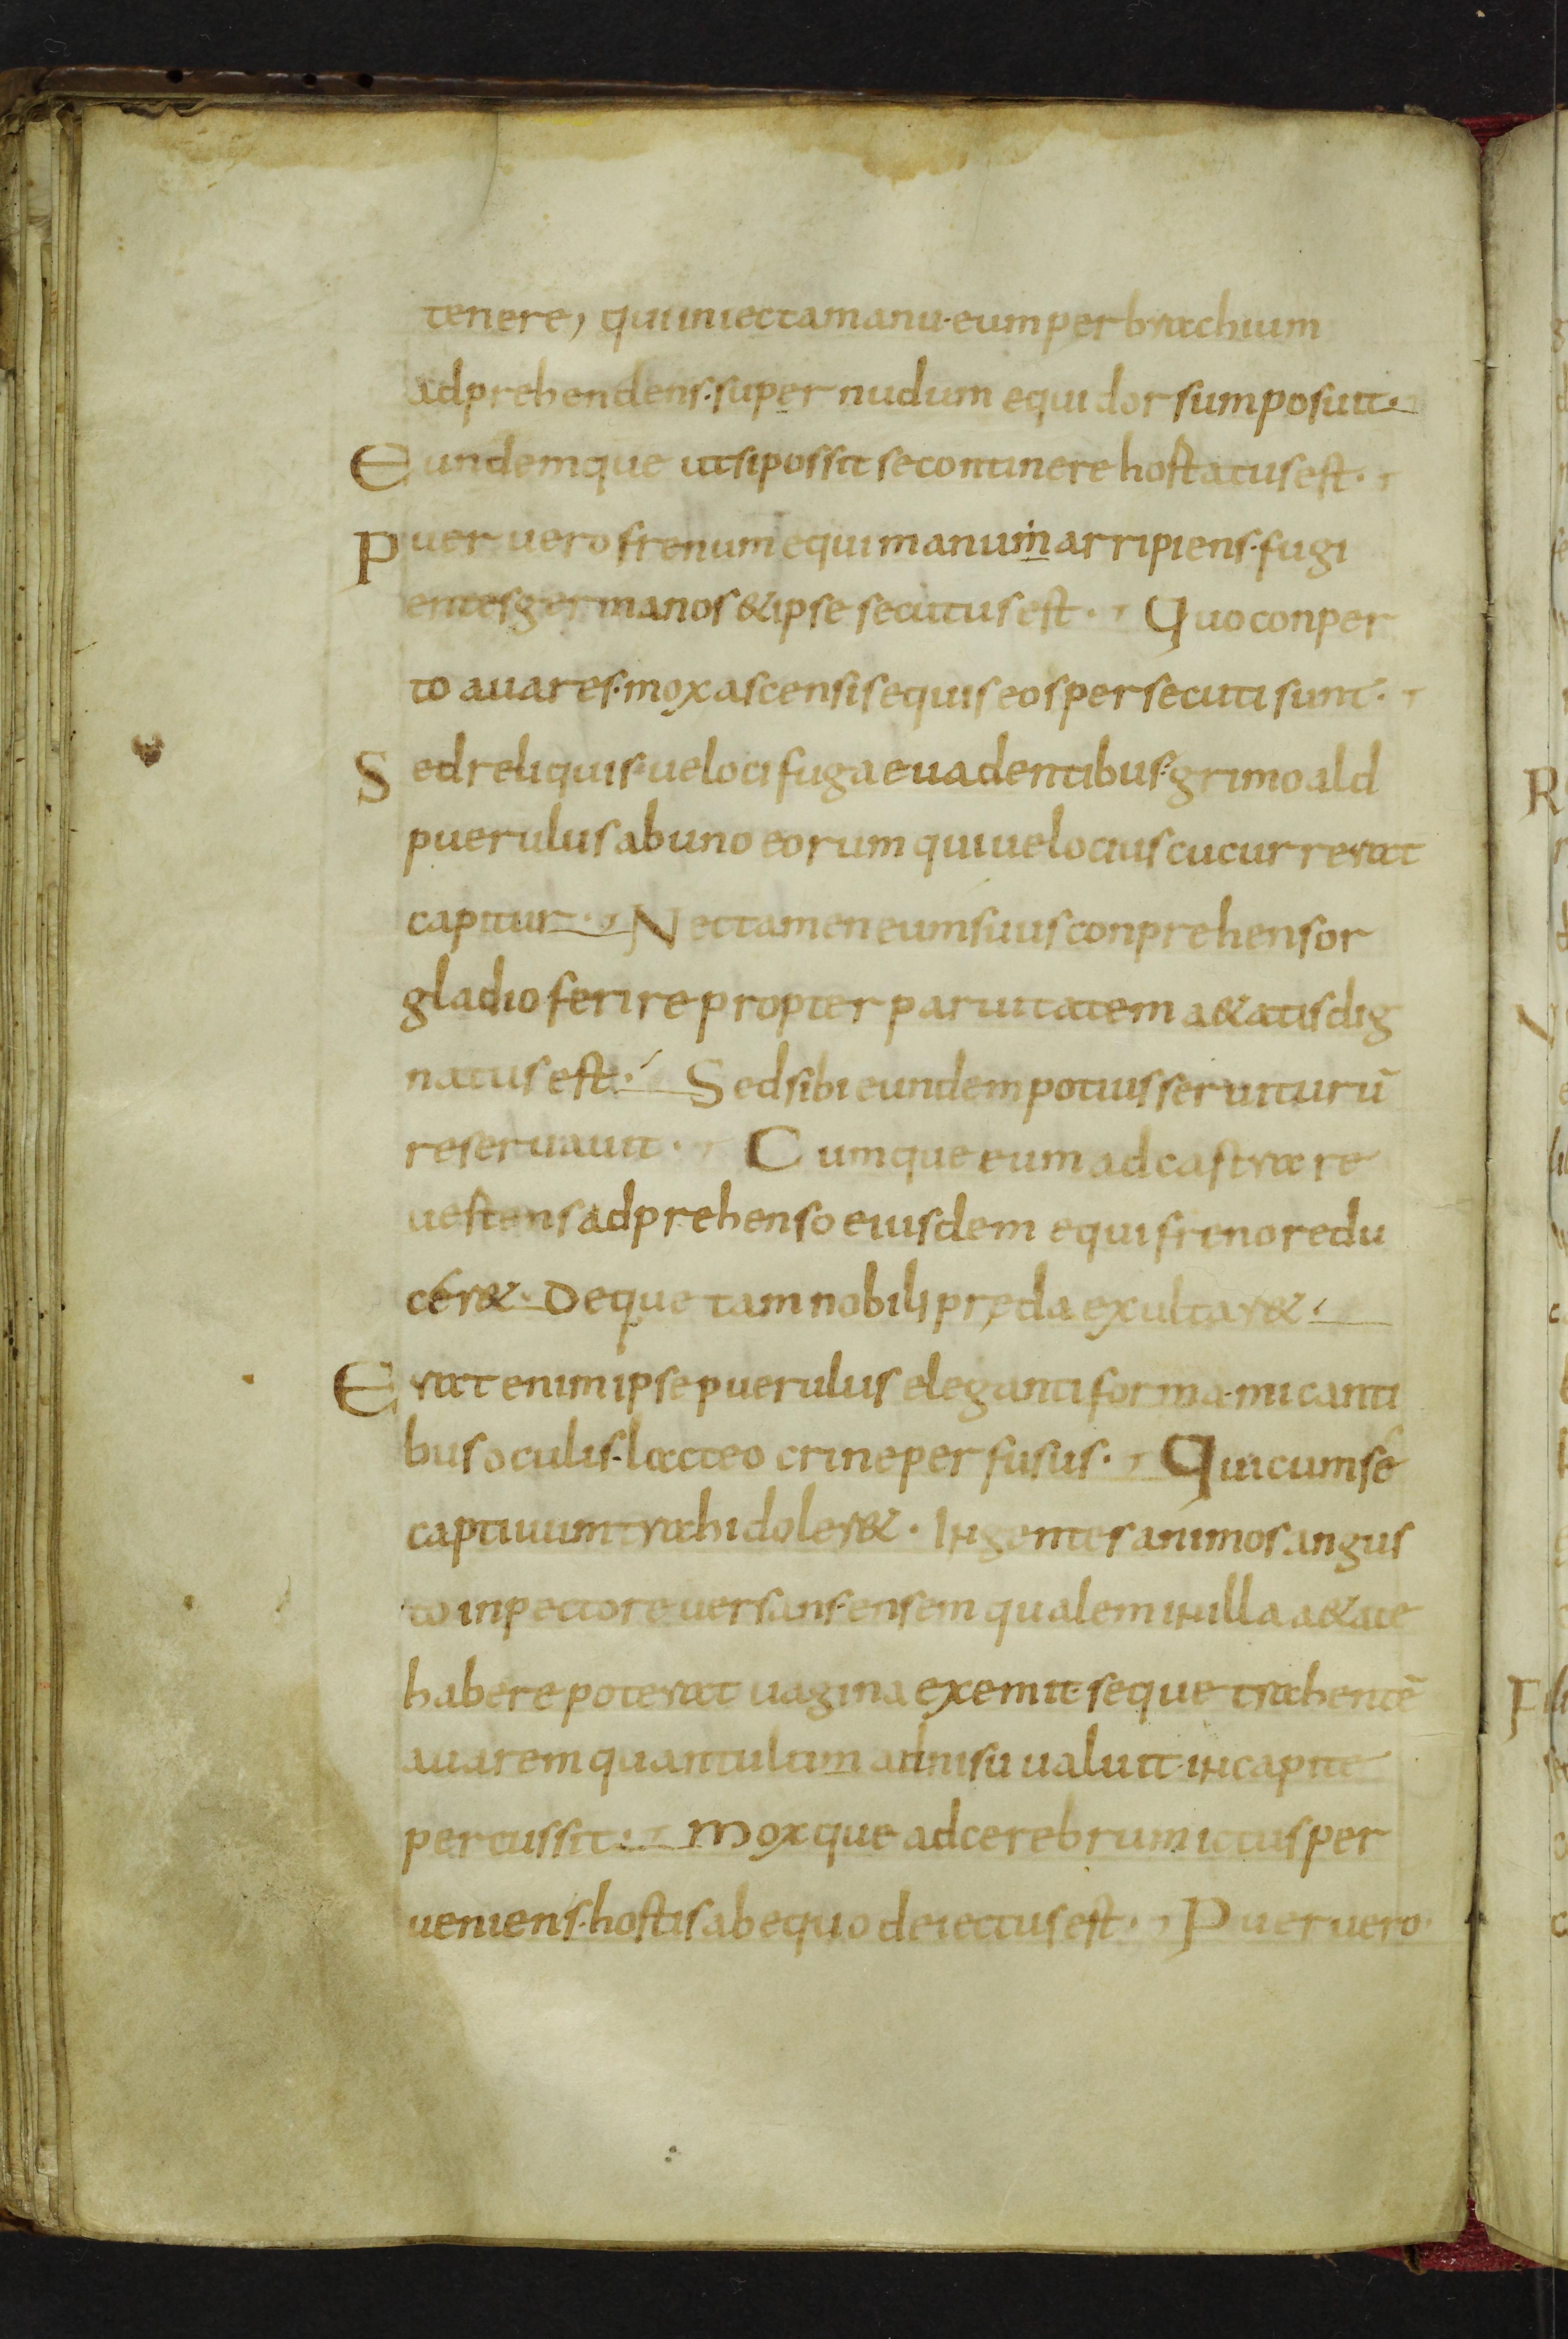 tenere, qui iniecta manu· eum per brachium
adprehendens· super nudum equi dorsum posuit·
Eundemque ut si possit se continere hostatus est·
Puer uero frenum equi manum arripiens· fugi
entes germanos & ipse secutus est· Quo conper
to auares· mox ascensis equis eos persecuti sunt·
Sed reliquis ueloci fuga euadentibus· grimoald
puerulus ab uno eorum qui uelocius cucurrerat
capitur· Nec tamen eum suus conprehensor
gladio ferire propter paruitatem a&atis dig
natus est· Sed sibi eundem potuis seruiturū
reseruauit· Cumque eum ad castra re
uestens adprehenso eiusdem equi frino redu
cer&· Deque tam nobili pręda exultar&·
Erat enim ipse puerulus eleganti forma· micanti
bus oculis· lacteo crine perfusus· Qui cum se
captiuum trahi doler&· Ingentes animos angus
to in pectore uersans· ensem qualem in illa a&ate
habere poterat uagina exemit· seque trahentē
auarem quantulum adnisu ualuit· in capite
percussit· Moxque ad cerebrum ictus per
ueniens· hostis ab equo deiectus est· Puer uero·